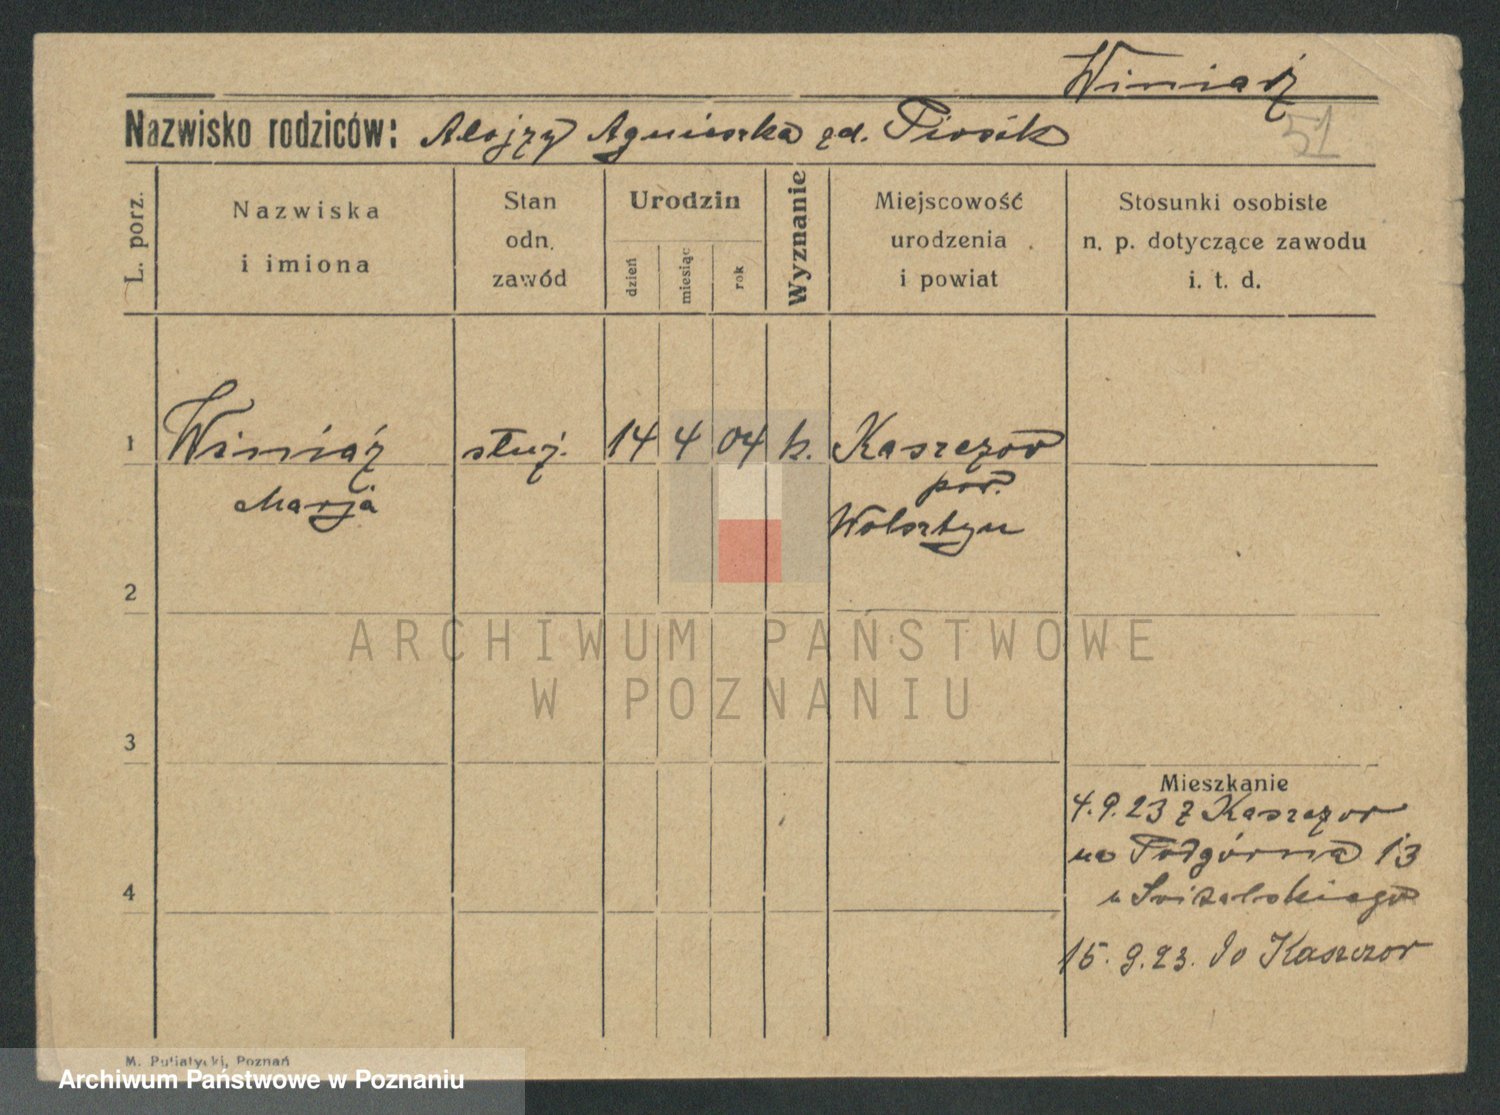 Winiarz
51
Nazwisko rodziców: Alojzy Agnieszka zd. Piosik
L. porz.
Nazwiska
i imiona
Stan
odn.
zawód
Urodzin
dzień
miesiąc
rok
Wyznanie
Miejscowość
urodzenia
i powiat
Stosunki osobiste
n. p. dotyczące zawodu
i. t. d.
1 Winiarz służ. 14 4 04 k. Kaszczor
Marja
pow.
Wolsztyn
2
3
4
Mieszkanie
4.9.23 z Kaszczor
na Podgórna 13
u
15.9.23. do Kaszczor
ARCHIWUM PAŃSTWOWE
W POZNANIU
M. Putiatycki, Poznań
Archiwum Państwowe w Poznaniu